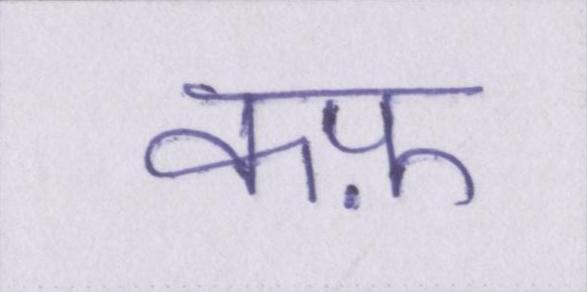 कफ़